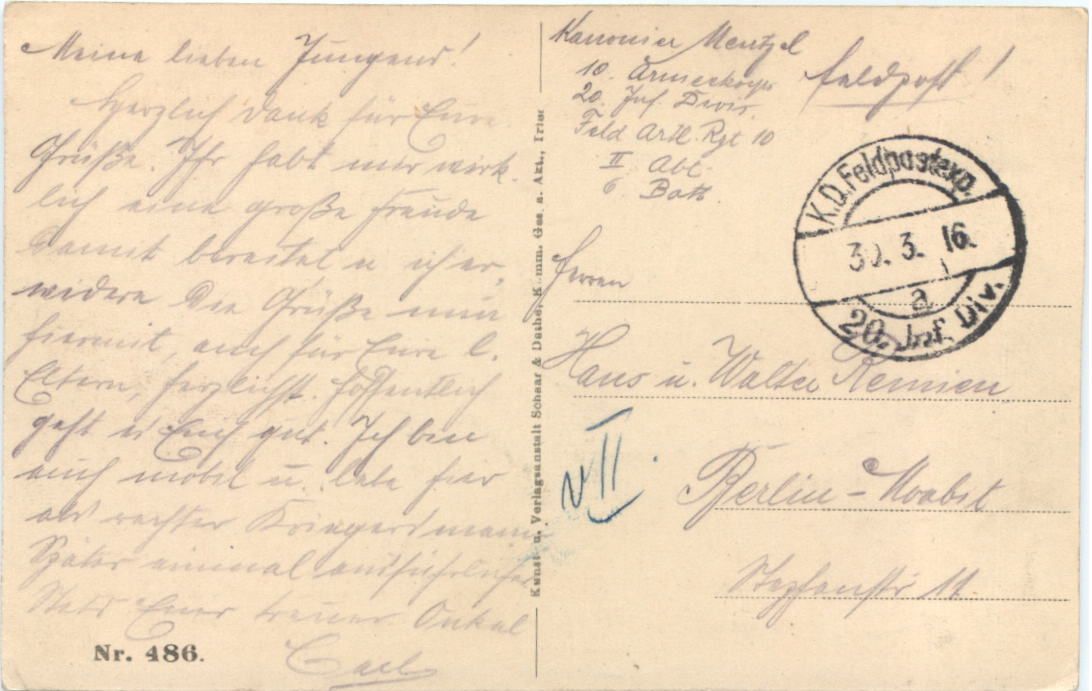 Meine lieben Jungens!
Herzlich Dank für Eure
Grüße. Ihr habt mir wirk-
lich eine große Freude
damit bereitet u ich er,
widere die Grüße nun
hiermit, auch für Eure l.
Eltern, herzlichst. Hoffentlich
geht es Euch gut. Ich bin
auch mobil u. lebe hier
als rechter Kriegersmann
Später einmal ausführlicher
Stets Euer treuer Onkel
Carl
Nr. 486.
Kunst- u. Verlagsanstalt Schaar & Dathe, Komm. Ges. a. Akt., Trier
Kanonier Mentzel
10. Armeekorps
20. Inf. Divis.
Feld Artl. Rgt 10
II Abt.
6 Batt.
Feldpost!
K.D. Feldpostexp.
30. 3. 16.
a
20. Inf. Div.
Herren
Hans u. Walter Remien
v II.
Berlin-Moabit
Stephanstr 11